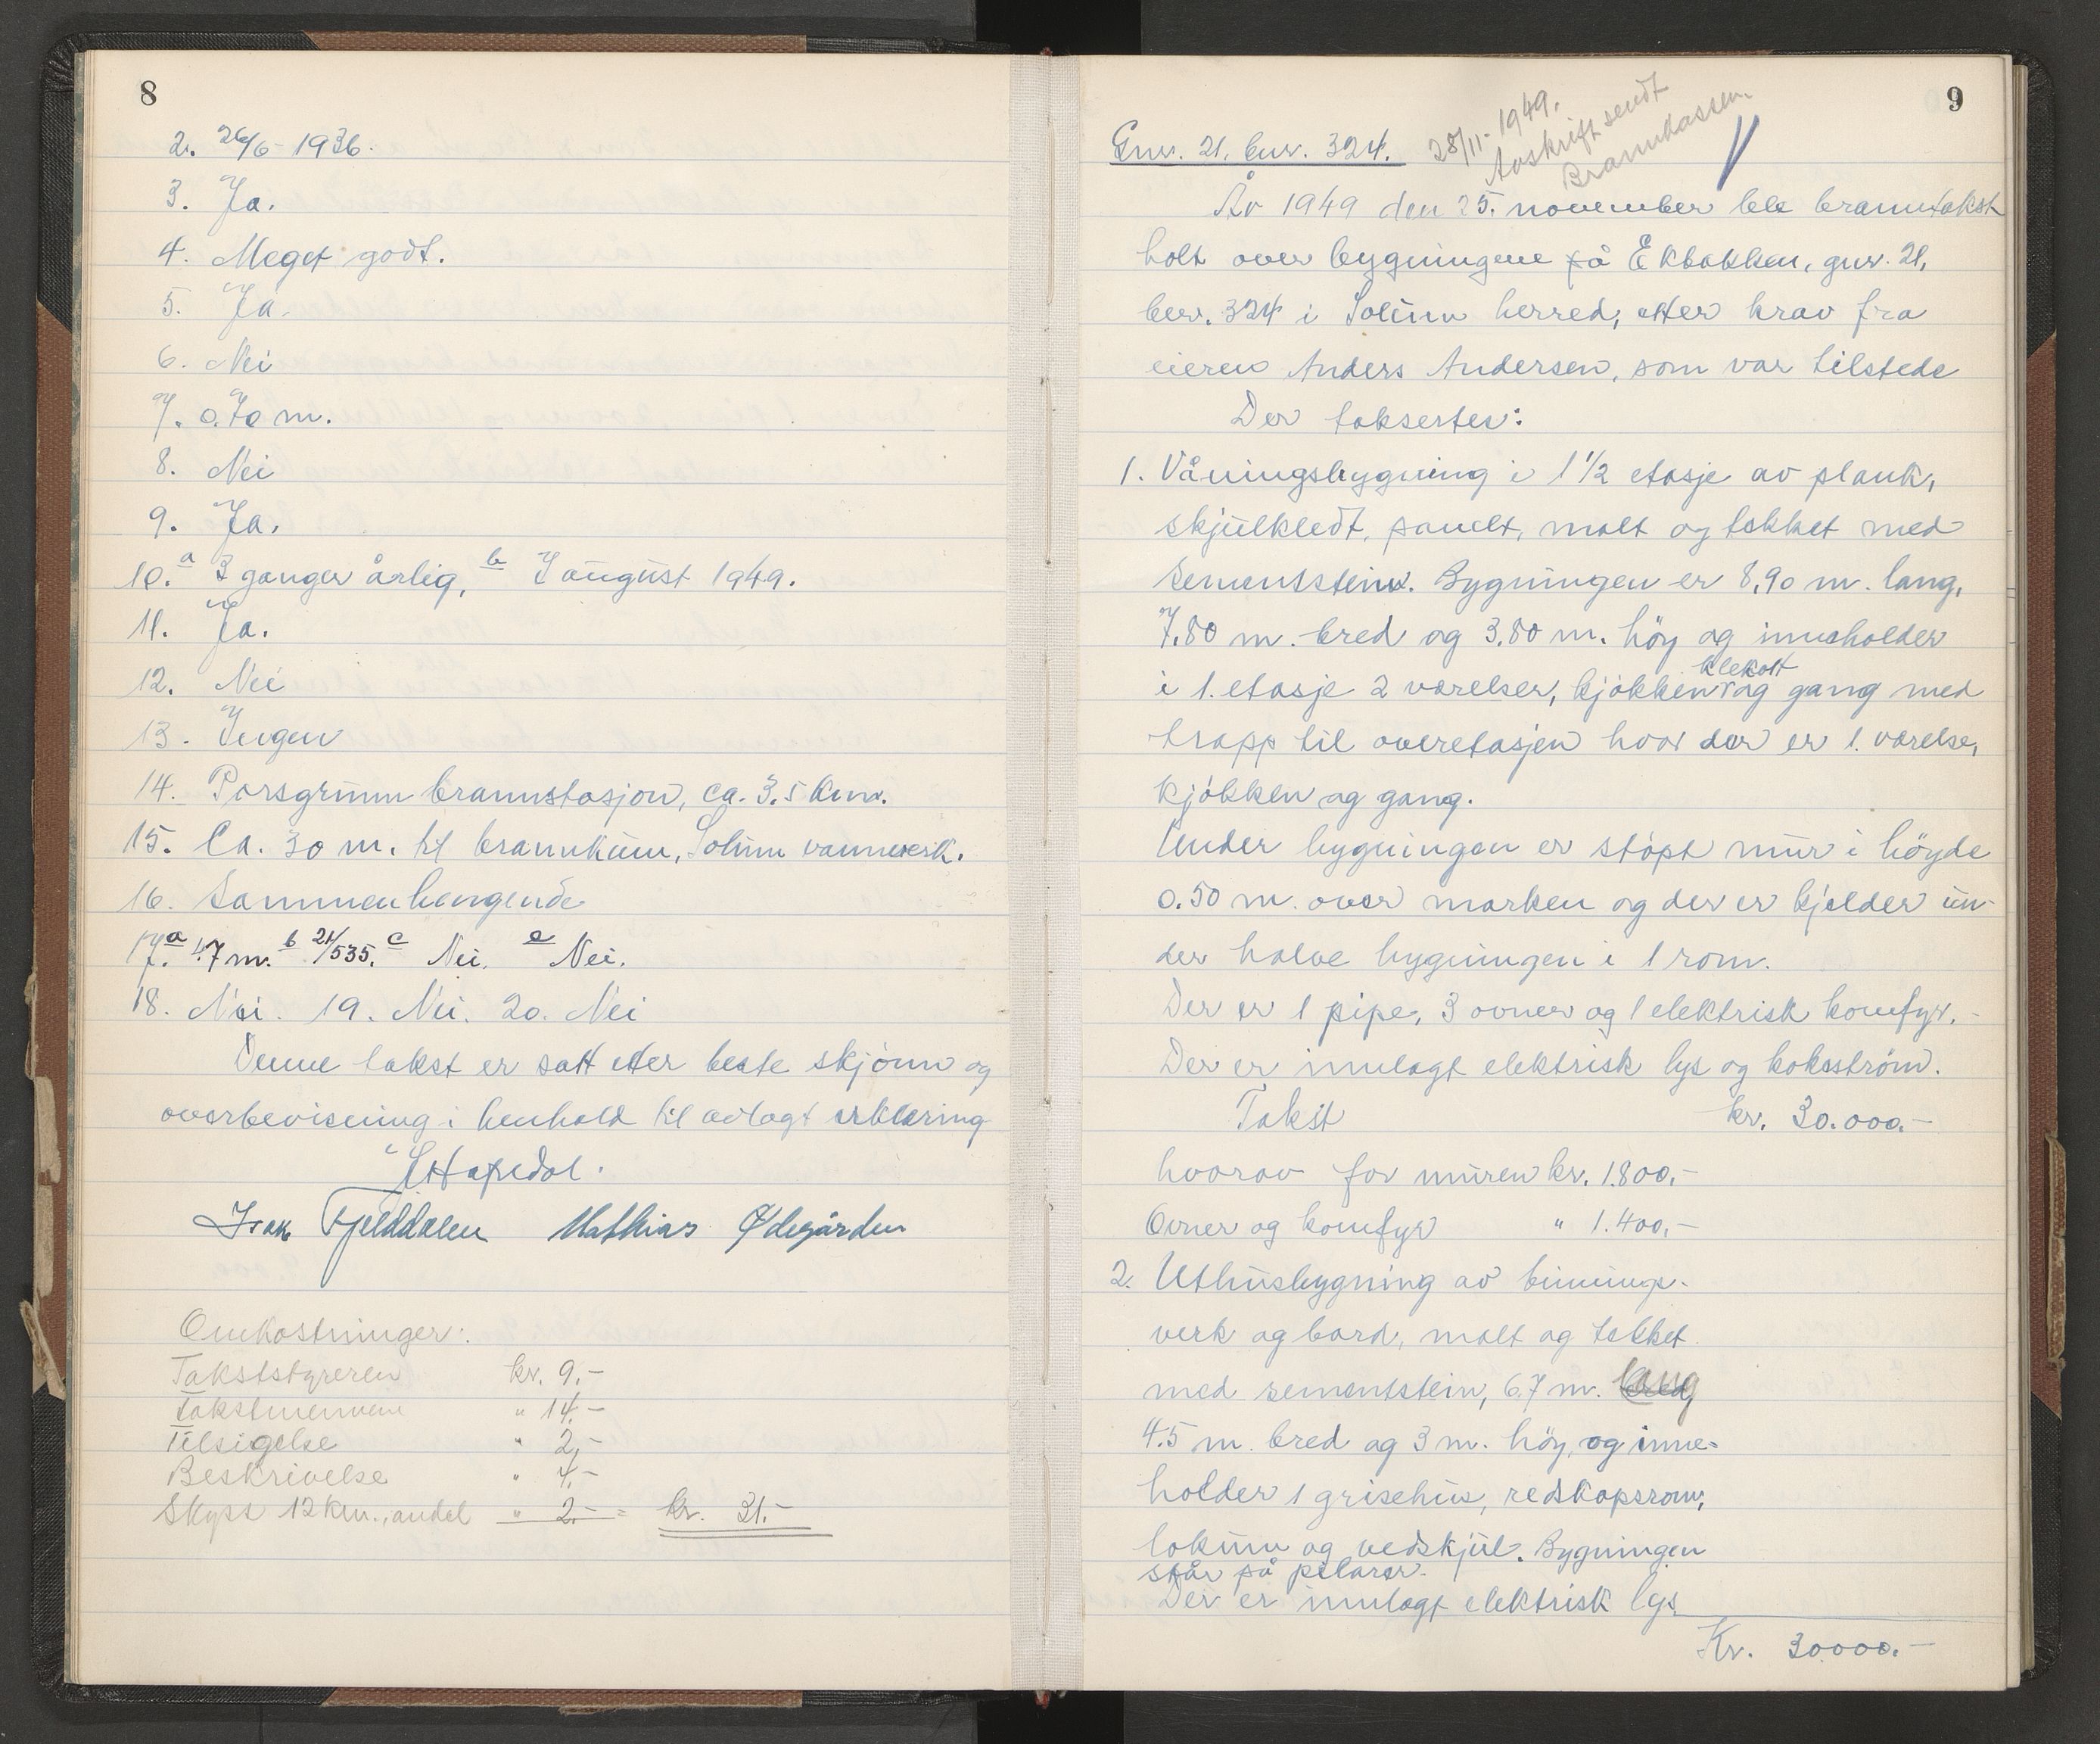 8
2. 26/6 - 1936.
3. Ja.
4. Meget godt.
5. Ja.
6. Nei
7. 0.70 m.
8. Nei
9. Ja.
10. a 3 ganger årlig, b 7 august 1949.
11. Ja.
12. Nei
13. Ingen
14. Porsgrunn brannstasjon, ca. 3.5 km.
15. Ca. 30 m. til brannkum, Solum vannverk.
16. Sammenhengende
17. a 17 m. b 21/535. c Nei. e Nei.
18. Nei. 19. Nei. 20. Nei
Denne takst er satt etter beste skjønn og
overbevisning i henhold til avlagt erklæring
Isak Fjelddalen Mathias Ødegården
Omkostninger:
Takststyreren kr. 9.-
Takstmennene " 14.-
Tilsigelse " 2,-
Beskrivelse " 4.-
Skyss 12 km., andel " 2.- = kr. 31.-
9
28/11- 1949.
Avskrift sendt
Brannkassen.
Gnr. 21. bnr. 324.
År 1949 den 25. november ble branntakst
holt over bygningene på Ekbakken, gnr. 21,
bnr. 324 i Solum herred, etter krav fra
eieren Anders Andersen, som var tilstede
Der taksertes:
1. Våningsbygning i 1 1/2 etasje av plank,
skjulkledt, panelt, malt og tekket med
sementstein. Bygningen er 8,90 m. lang,
7.80 m. bred og 3.80 m. høy og inneholder
i 1. etasje 2 værelser, kjøkken klekott og gang med
trapp til overetasjen hvor der er 1. værelse,
kjøkken og gang.
Under bygningen er støpt mur i høyde
0.50 m. over marken og der er kjelder un-
der halve bygningen i 1 rom.
Der er 1 pipe, 3 ovner og 1 elektrisk komfyr.
Der er innlagt elektrisk lys og kokestrøm.
Takst kr. 30.000.-
hvorav for muren kr. 1.800.-
Ovner og komfyr " 1.400,-
2. Uthusbygning av binnings-
verk og bord, malt og tekket
med sementstein, 6.7 m. lang
4.5 m. bred og 3 m. høy, og inne-
holder 1 grisehus, redskapsrom,
lokum og vedskjul. Bygningen
står på pilarer.
Der er innlagt elektrisk lys
Kr. 30000.-